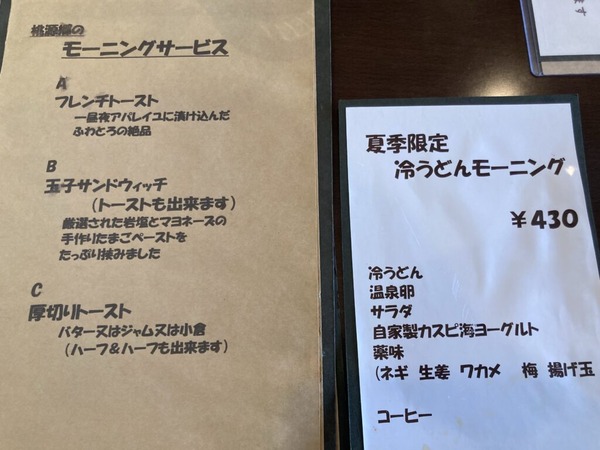 桃源郷の
モーニングサービス
A
フレンチトースト
一昼夜アパレイユに漬け込んだ
ふわとろの絶品
B
玉子サンドウィッチ
(トーストも出来ます)
厳選された岩塩とマヨネーズの
手作りたまごペーストを
たっぷり挟みました
C
厚切りトースト
バター又はジャム又は小倉
(ハーフ&ハーフも出来ます)
ます
夏季限定
冷うどんモーニング
¥430
冷うどん
温泉卵
サラダ
自家製カスピ海ヨーグルト
薬味
(ネギ 生姜 ワカメ 梅 揚げ玉
コーヒー